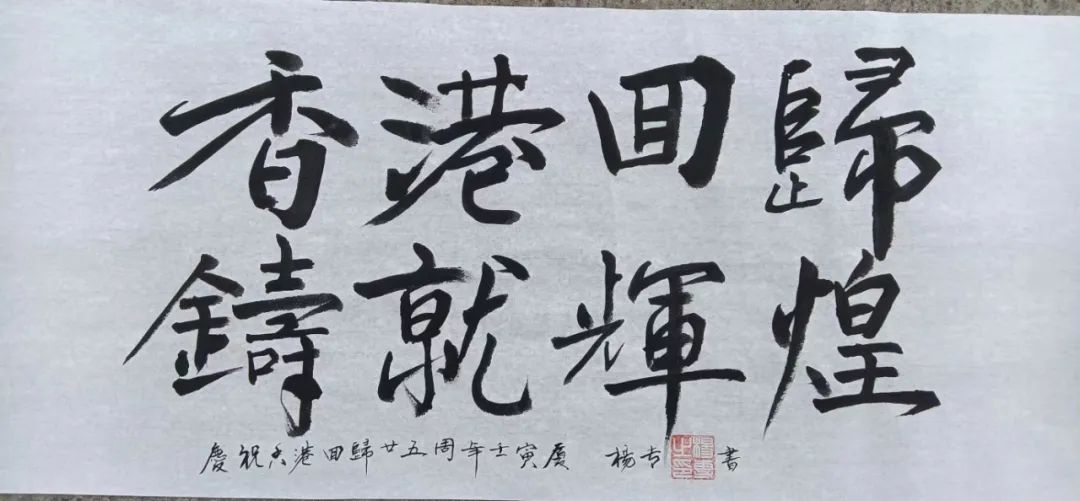 香港回歸
鑄就輝煌
慶祝香港回歸廿五周年壬寅夏 楊 書